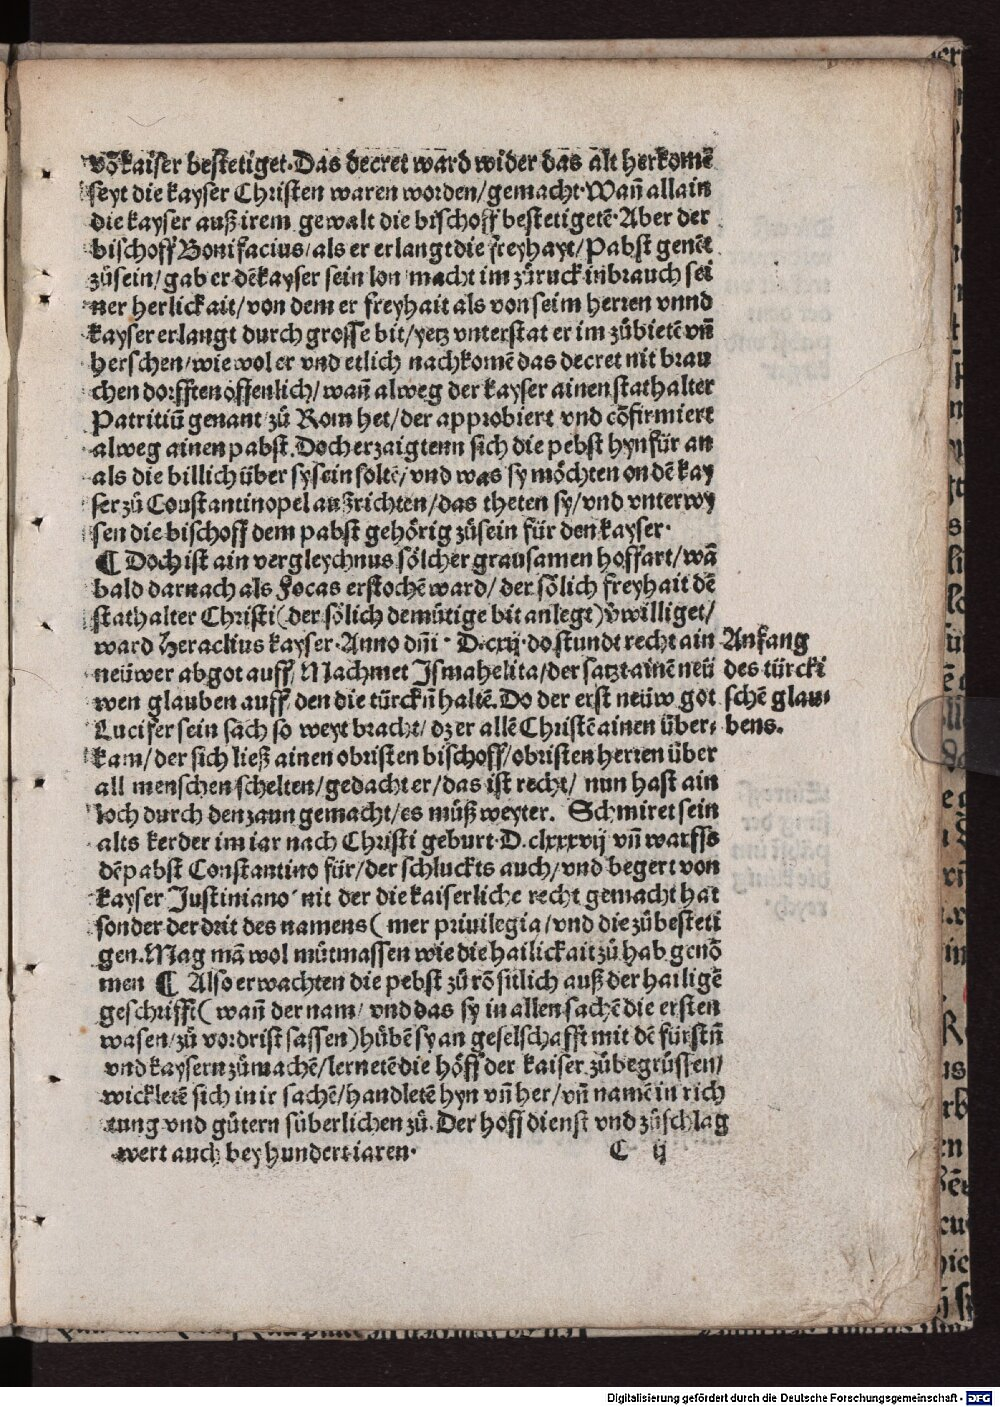 võ kaiser bestetiget. Das decret ward wider das alt herkomē
seyt die kayser Christen waren worden/ gemacht. Wañ allain
die kayser auß irem gewalt die bischoff bestetigetē. Aber der
bischoff Bonifacius/ als er erlangt die freyhayt/ Pabst genēt
zůsein/ gab er dē kayser sein lon macht im zůruck in brauch sei
ner herlickait/ von dem er freyhait als von seim herren vnnd
kayser erlangt durch grosse bit/ yetz vnterstat er im zůbietē vñ
herschen/ wie wol er vnd etlich nachkomē das decret nit brau
chen dorfften offenlich/ wañ alweg der kayser ainen stathalter
Patritiū genant zů Rom het/ der approbiert vnd cõfirmiert
alweg ainen pabst. Doch erzaigtenn sich die pebst hynfür an
als die billich über sy sein soltē/ vnd was sy möchten on dē kay
ser zů Constantinopel außrichten/ das theten sy/ vnd vnterwy
sen die bischoff dem pabst gehörig zůsein für den kayser.
¶ Doch ist ain vergleychnus sölcher grausamen hoffart/ wā
bald darnach als Focas erstochē ward/ der sölich freyhait dē
stathalter Christi (der sölich demůtige bit anlegt) v̄williget/
ward Heraclius kayser. Anno dñi. D.cxij. do stundt recht ain
neüwer abgot auff/ Machmet Ismahelita/ der satzt ainē neü
wen glauben auff/ den die türckñ haltē. Do der erst neüw got
Lucifer sein sach so weyt bracht/ dz er allē Christē ainen über-
kam/ der sich ließ ainen obristen bischoff/ obristen herren über
all menschen schelten/ gedacht er/ das ist recht/ nun hast ain
loch durch den zaun gemacht/ es můß weyter. Schmiret sein
alts kerder im iar nach Christi geburt. D.clxxxvij vñ warffs
dē pabst Constantino für/ der schluckts auch/ vnd begert von
kayser Justiniano/ nit der die kaiserliche recht gemacht hat
sonder der drit des namens (mer priuilegia/ vnd die zůbesteti
gen. Mag mā wol můtmassen wie die hailickait zů hab genō
men ¶ Also erwachten die pebst zů rō sitlich auß der hailigē
geschrifft (wañ der nam/ vnd das sy in allen sachē die ersten
wasen/ zů vordrist sassen) hůbē sy an geselschafft mit dē fürstñ
vnd kaysern zůmachē/ lernetē die höff der kaiser zůbegrüssen/
wickletē sich in ir sachē/ handletē hyn vñ her/ vñ namē in rich
tung vnd gütern süberlichen zů. Der hoff dienst vnd zůschlag
wert auch bey hundert iaren.
C ij
Anfang
des türcki
schē glau-
bens.
Digitalisierung gefördert durch die Deutsche Forschungsgemeinschaft - DFG